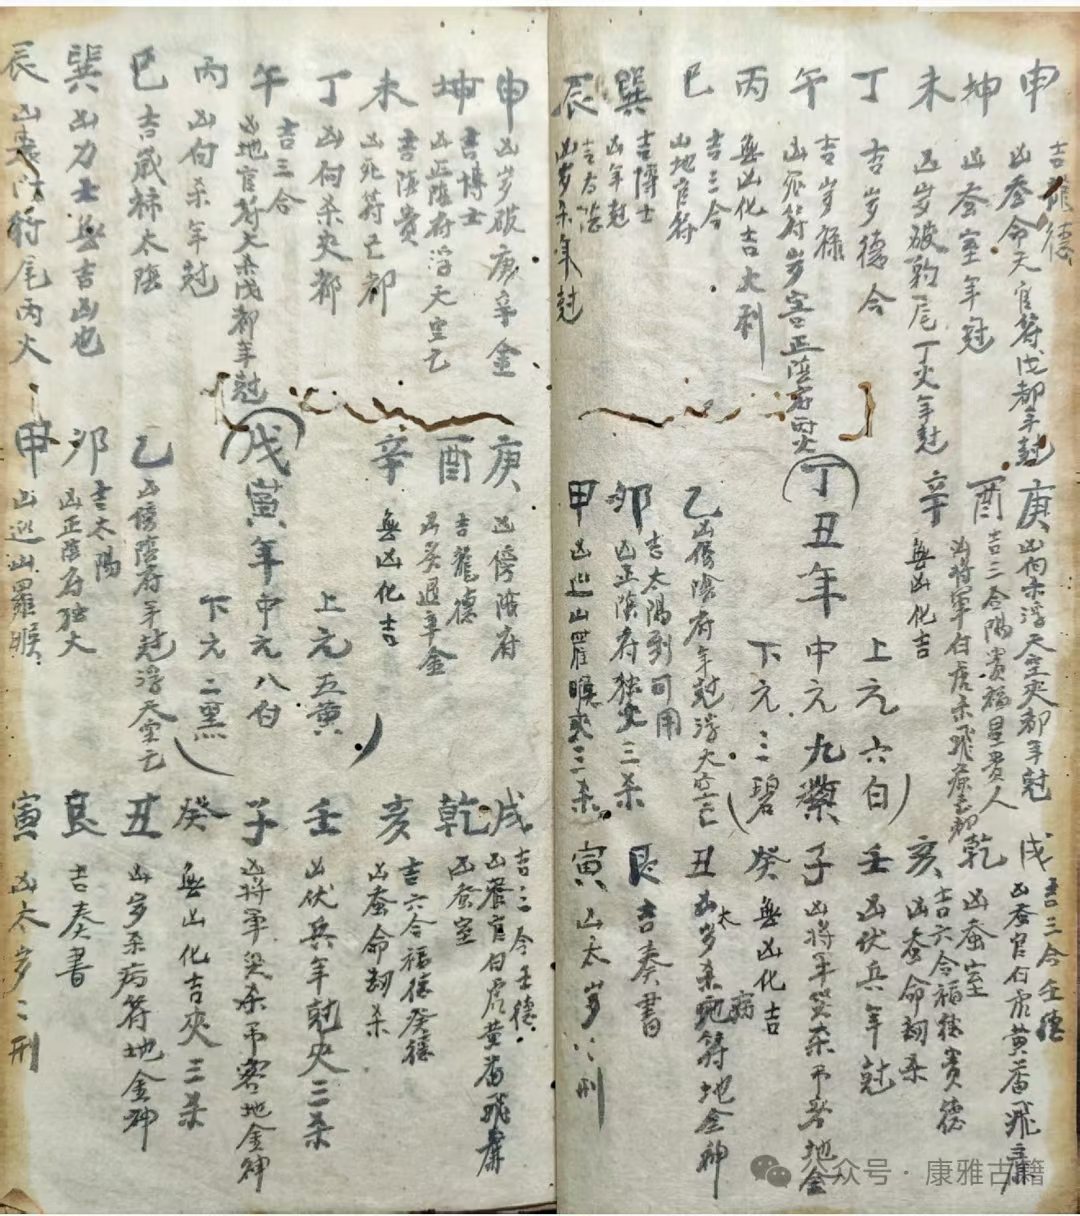 申 吉龍德
凶蚕命天官符戊都年尅
坤 凶蚕室年冠
未 凶岁破豹尾丁火年尅
丁 吉岁德合
午 吉岁禄
凶死符岁害正陰府丙火
丙 無凶化吉大利
巳 吉三合
凶地官符
巽 吉博士
凶年尅
辰 吉太陰
凶岁杀年尅
庚 凶向杀浮天空夾都年尅
酉 吉三合陽貴福星貴人
凶将軍白虎
辛 無凶化吉
丁丑年
上元六白
中元九紫
下元三碧
乙 凶傍陰府年尅浮天空亡
卯 吉太陽到可用
凶正陰府独火三杀
甲 凶巡山罗睺夾三杀
戌 吉三合壬德
凶蚕官白虎黄番飛廉
乾 凶蚕室
亥 吉六合福德貴德
凶蚕命劫杀
壬 凶伏兵年尅
子 凶将军災杀吊客地金
癸 無凶化吉
丑 凶太岁杀病符地金神
艮 吉奏書
寅 凶太岁刑
申 凶岁破庚辛金
坤 吉博士
凶正陰府浮天空亡
未 吉陰貴
凶死符亡都
丁 凶向杀夾都
午 吉三合
凶地官符大杀戊都年尅
丙 凶向杀年尅
巳 吉歲禄太陰
巽 凶力士無吉凶也
辰 凶
符尾丙火
庚 凶傍陰府
酉 吉龍德
凶炙退辛金
辛 無凶化吉
戊寅年
上元五黄
中元八白
下元二黑
乙 凶傍陰府年尅浮天空亡
卯 吉太陽
凶正陰府独火
甲 凶巡山羅睺
戌 吉三合壬德
凶蚕官白虎黄番飛廉
乾 凶蚕室
亥 吉六合福德癸德
凶蚕命劫杀
壬 凶伏兵年尅夾三杀
子 凶将軍災杀吊客地金神
癸 無凶化吉夾三杀
丑 凶岁杀病符地金神
艮 吉奏書
寅 凶太岁刑
公众号·康雅古籍